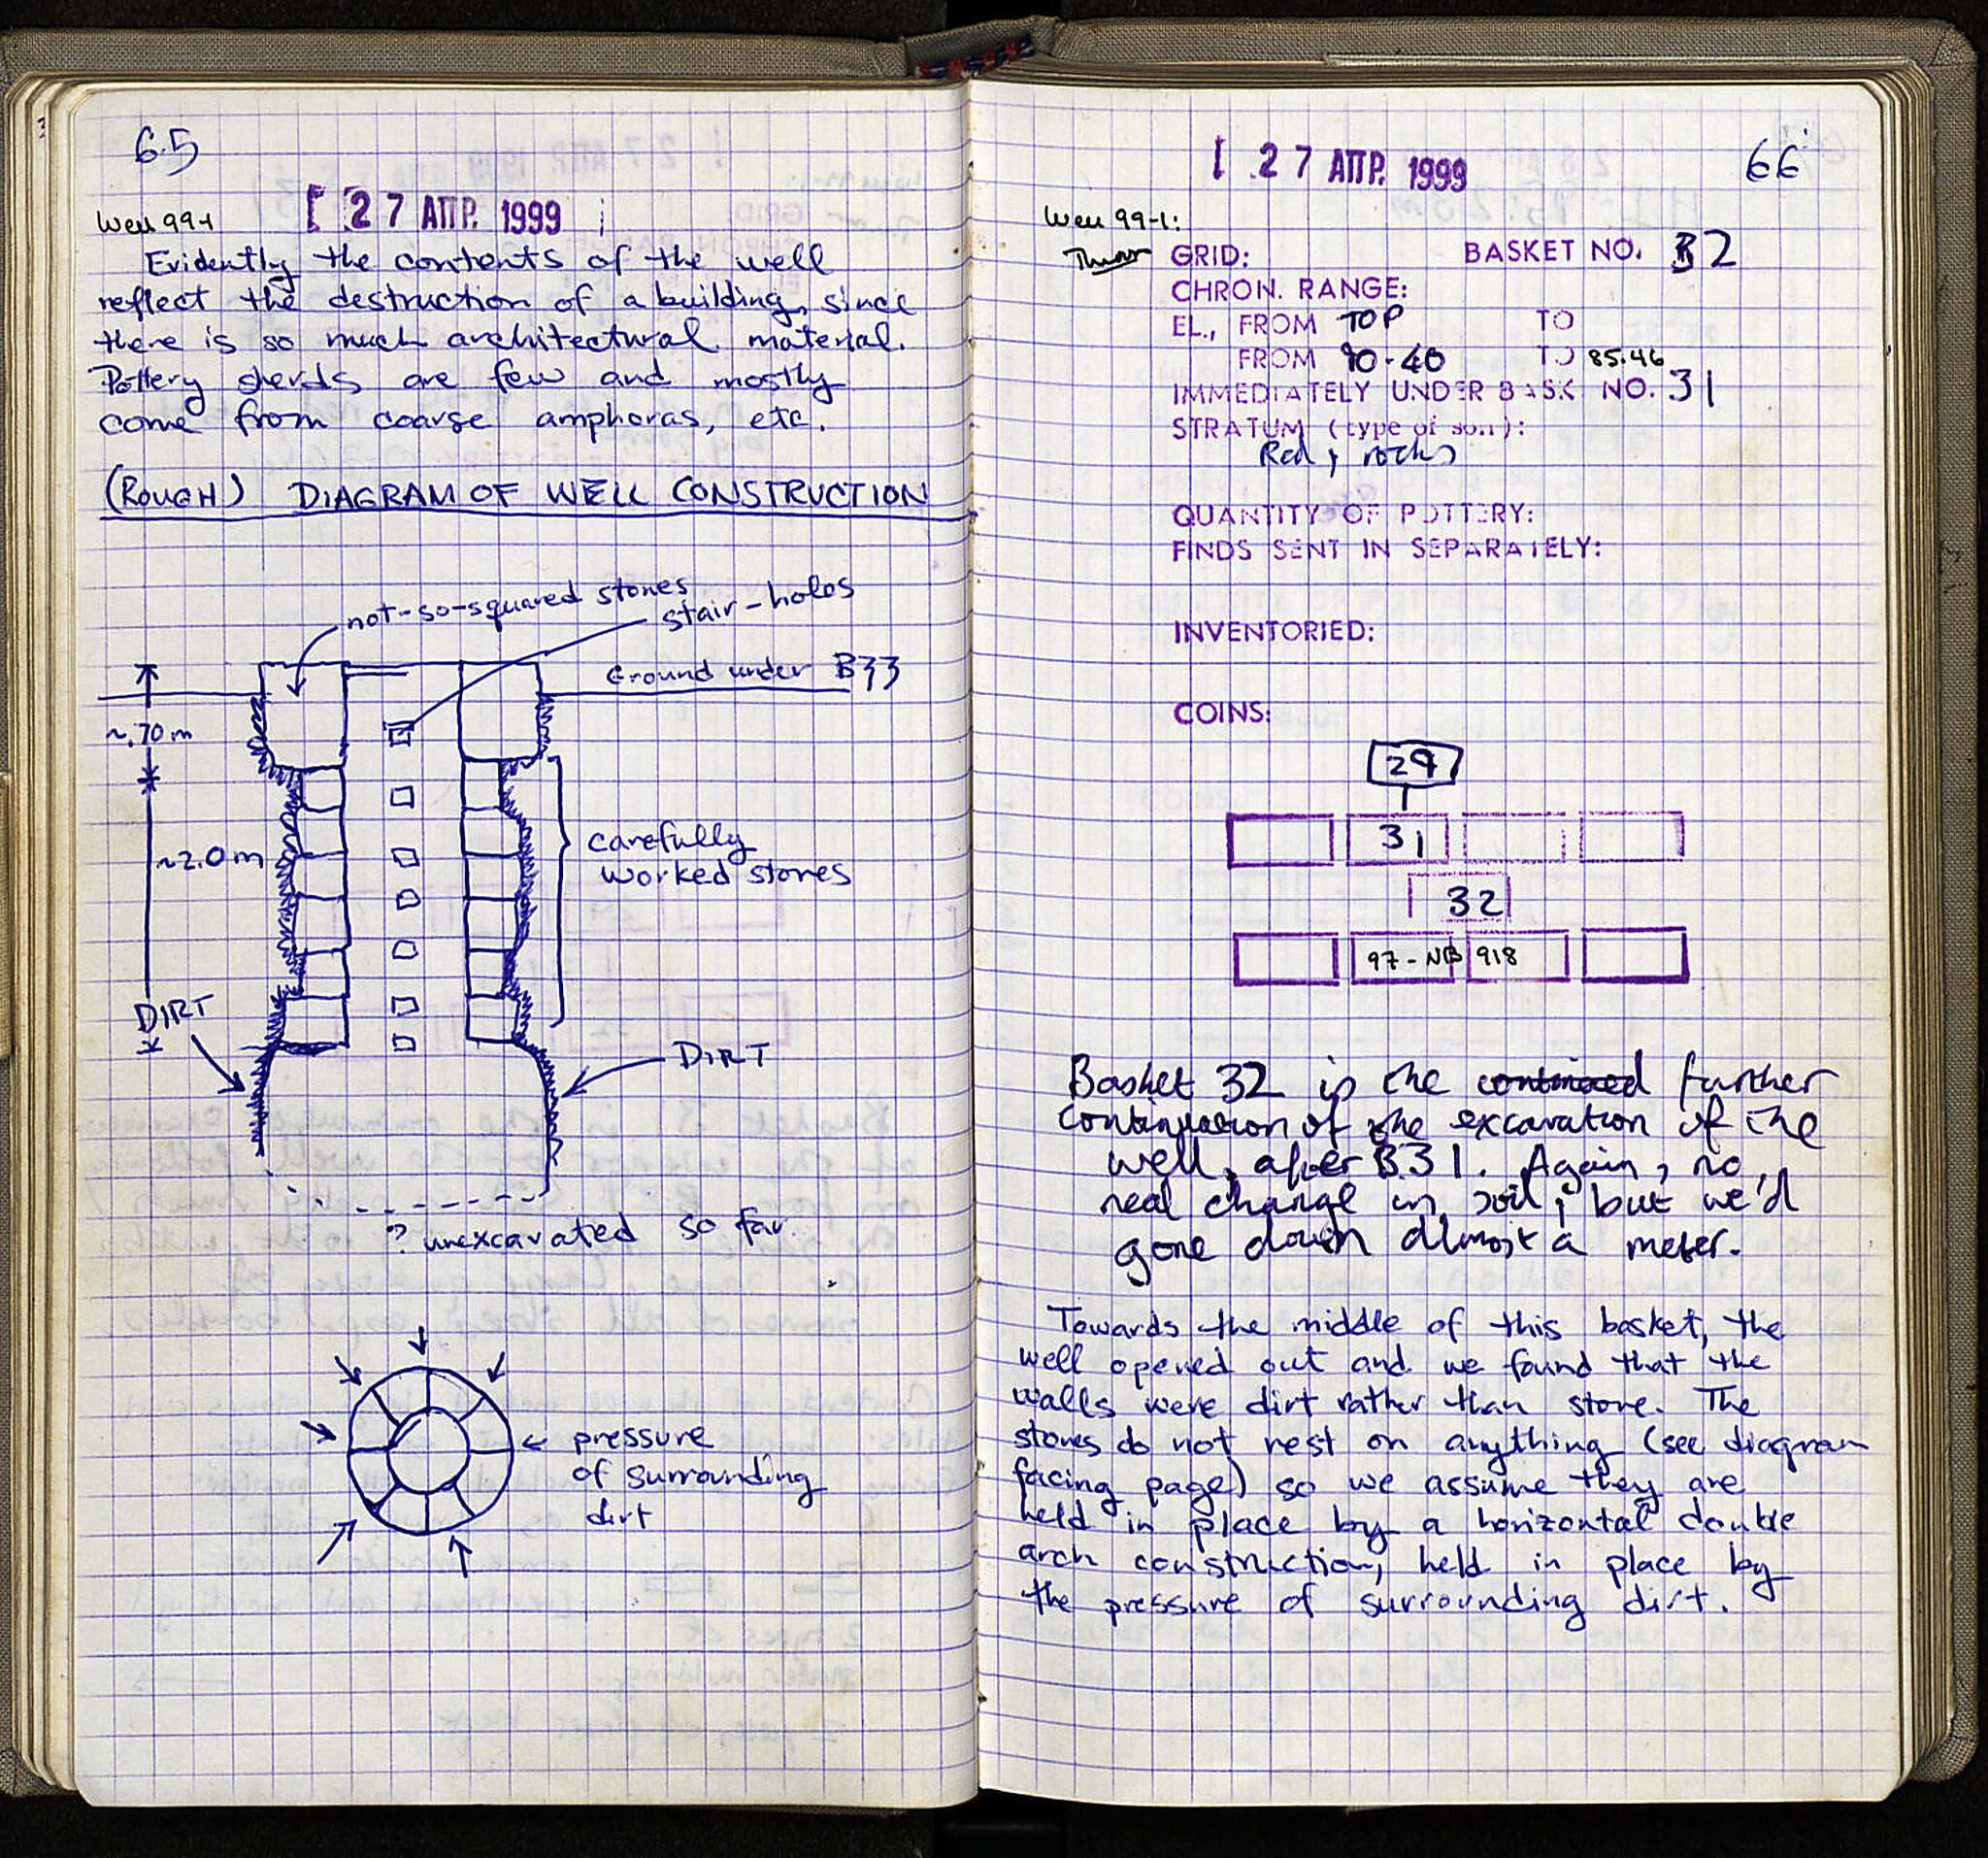 65
[ 27 ΑΠΡ. 1999
Well 99-1
Evidently the contents of the well
reflect the destruction of a building, since
there is so much architectural material.
Pottery sherds are few and mostly
come from coarse amphoras, etc.
(ROUGH) DIAGRAM OF WELL CONSTRUCTION
not-so-squared stones
stair-holes
Ground under B33
~.70 m
carefully
worked stones
~2.0 m
DIRT
DIRT
? unexcavated so far.
pressure
of surrounding
dirt
[ 27 ΑΠΡ. 1999
66
Well 99-1:
GRID: BASKET NO. 32
CHRON. RANGE:
EL., FROM TOP TO
FROM 90.40 TO 85.46
IMMEDIATELY UNDER BASK. NO. 31
STRATUM (type of soil):
Red, rocks
QUANTITY OF POTTERY:
FINDS SENT IN SEPARATELY:
INVENTORIED:
COINS:
29
31
32
97-NB 918
Basket 32 is the continued further
continuation of the excavation of the
well, after B31. Again, no
real change in soil, but we'd
gone down almost a meter.
Towards the middle of this basket, the
well opened out and we found that the
walls were dirt rather than stone. The
stones do not rest on anything (see diagram
facing page) so we assume they are
held in place by a horizontal double
arch construction, held in place by
the pressure of surrounding dirt.